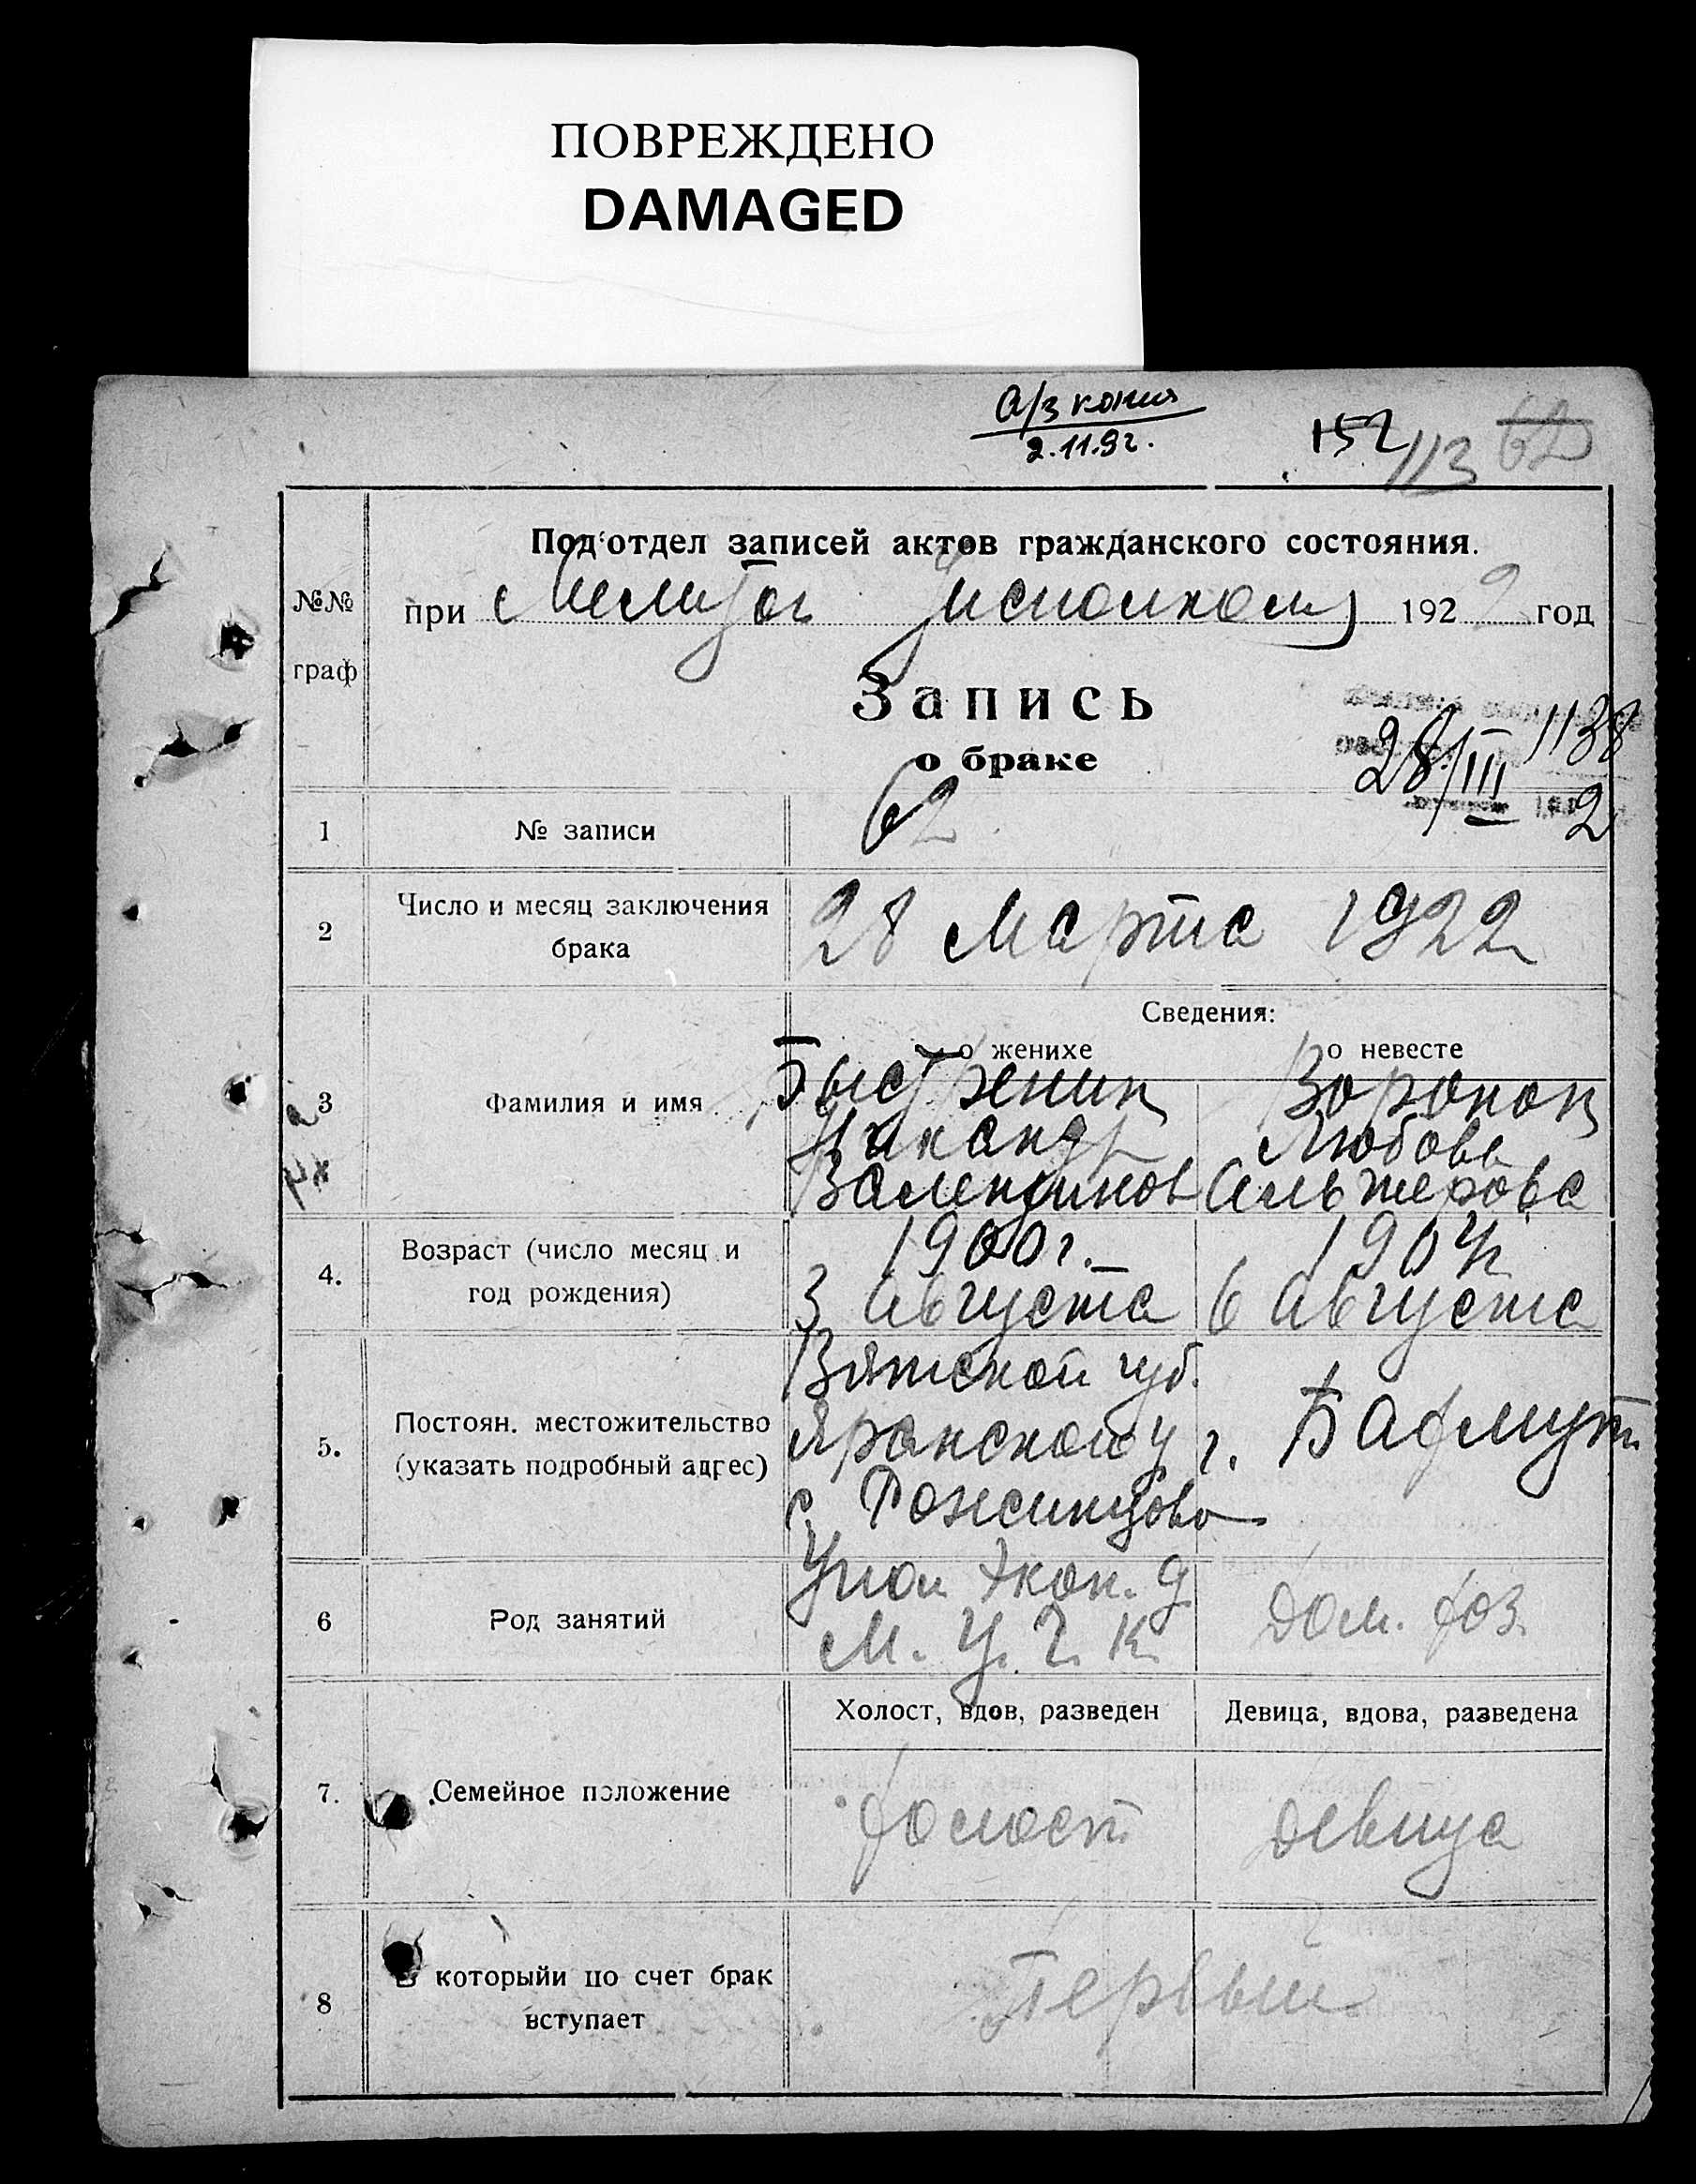 ПОВРЕЖДЕНО
DAMAGED
а/з копия
2.11.92.
152 113 62
№№ граф
Под‘отдел записей актов гражданского состояния.
при Мелитоп Уисполкому 1922 год
Запись
о браке
28/III 1138
2
1 № записи 62
2 Число и месяц заключения брака 28 Марта 1922
Сведения:
о женихе о невесте
3 Фамилия и имя
Быстренин Воронон
Никандр Любовь
Валентинов Альтерова
4. Возраст (число месяц и год рождения)
1900 г. 1904 г.
3 Августа 6 Августа
5. Постоян. местожительство (указать подробный адрес)
Вятской губ.
Яранской у г. Бахмут
с.
6 Род занятий
Упол Экон. О
М. У. Ч. К. Дом. хоз.
Холост, вдов, разведен Девица, вдова, разведена
7. Семейное положение холост девица
8 В которыйи по счет брак вступает Первый